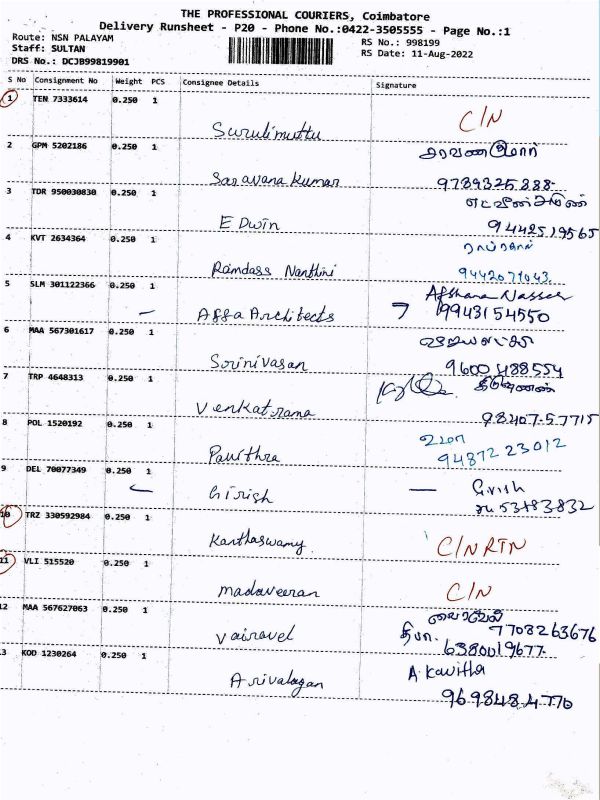 THE PROFESSIONAL COURIERS, Coimbatore
Delivery Runsheet - P20 - Phone No.:0422-3505555 - Page No.:1
Route: NSN PALAYAM
Staff: SULTAN
DRS No.: DCJB99819901
RS No.: 998199
RS Date: 11-Aug-2022
S No Consignment No Weight PCS Consignee Details Signature
1 TEN 7333614 0.250 1
Surulimuttu C/N
2 GPM 5202186 0.250 1
Saravana Kumar 9789325888
3 TDR 950030830 0.250 1
EDwin 9442519565
4 KVT 2634364 0.250 1
Ramdass Nanthini 9442071043
5 SLM 301122366 0.250 1 Afshana Nasser
— Affa Architects 9943154550
6 MAA 567301617 0.250 1
Srinivasan 9600488554
7 TRP 4648313 0.250 1
Venkatrama 98407-57715
8 POL 1520192 0.250 1 உமா
Pavithra 94872 23012
9 DEL 70077349 0.250 1
Girish — Girish
10 TRZ 330592984 0.250 1
Kanthaswamy C/N RTN
11 VLI 515520 0.250 1
madaveeran C/N
12 MAA 567627063 0.250 1 வைரவேல்
7708263676
Vairavel 6380019677
13 KOD 1230264 0.250 1 A. Kavitha
Arivalagan 9698484770